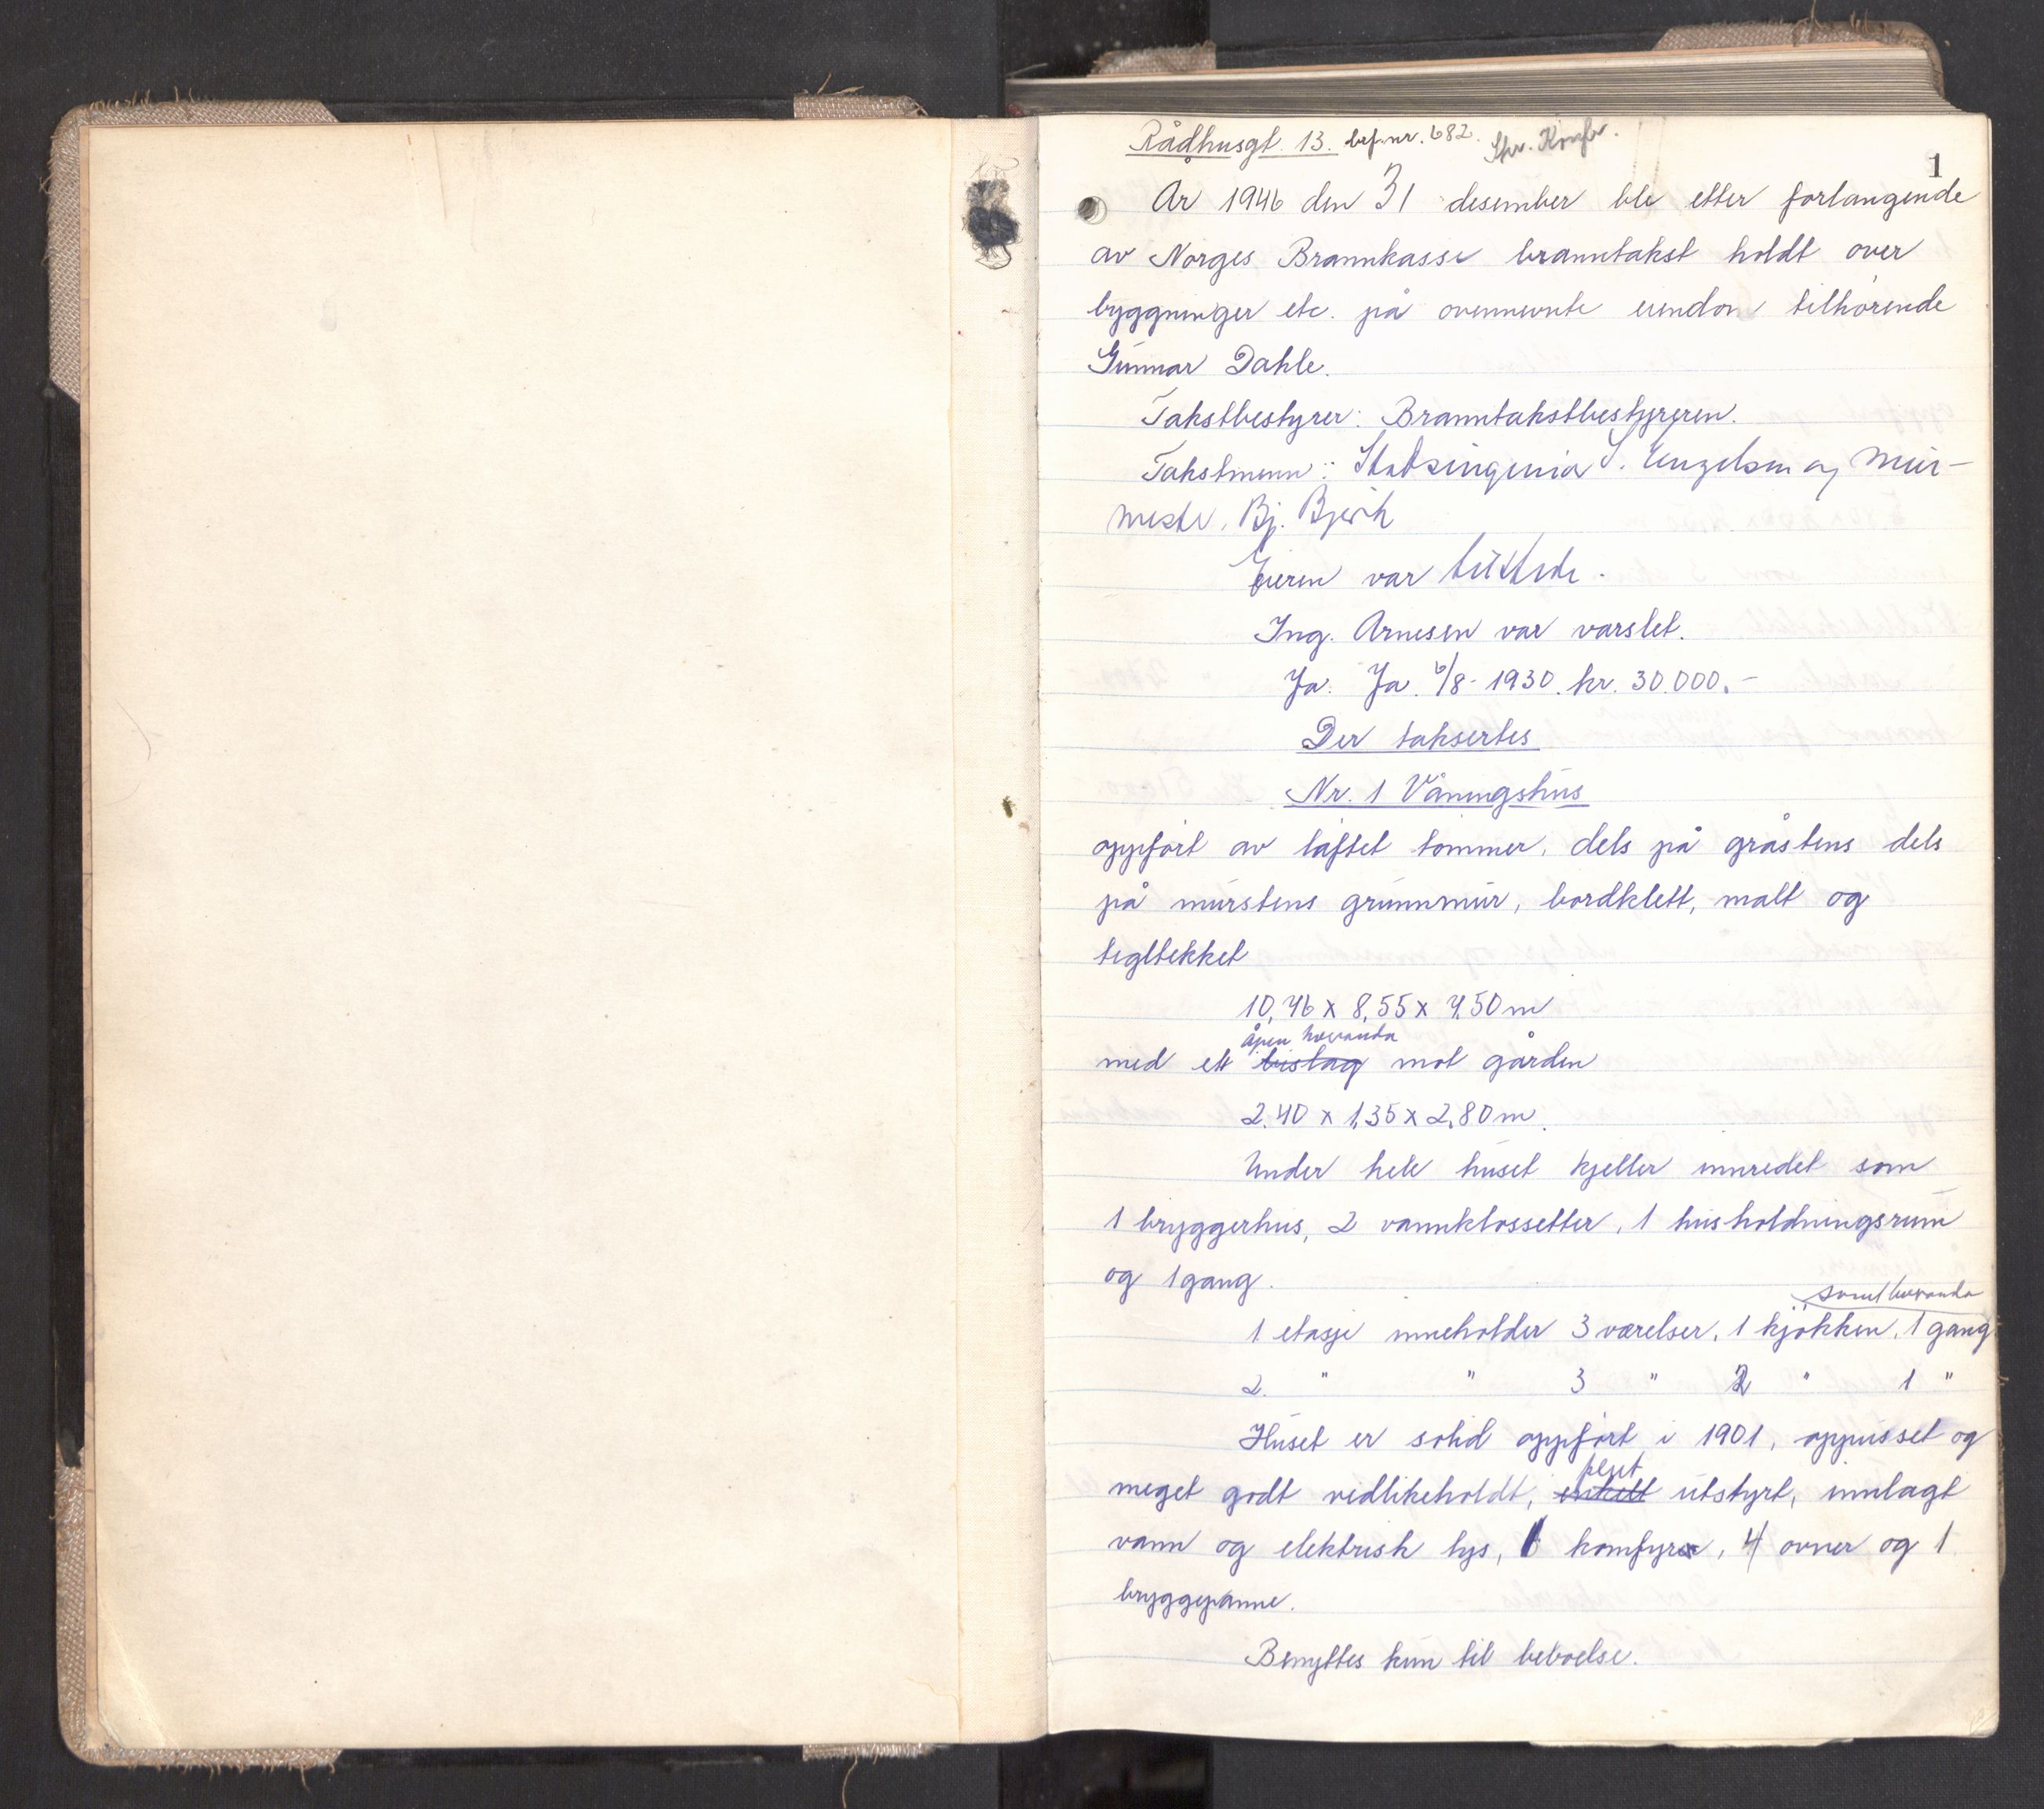 Rådhusgt. 13. brf.nr. 682. Skr. Konfr.
1
År 1946 den 31 desember ble etter forlangende
av Norges Brannkasse branntakst holdt over
byggninger etc. på ovennevnte eiendom tilhørende
Gunnar Dahle.
Takstbestyrer: Branntakstbestyreren.
Takstmenn: Stadsingeniør S. og Mur-
mester. Bj.
Eieren var tilstede.
Ing. Arnesen var varslet.
Ja. Ja. 6/8-1930. kr. 30.000.-
Der taksertes
Nr. 1 Våningshus
oppført av laftet tømmer, dels på gråstens dels
på murstens grunnmur, bordklett, malt og
tegltekket
10,46 x 8,55 x 7,50 m
åpen veranda
med ett bislag mot gården
2.40 x 1,35 x 2,80 m.
Under hele huset kjeller innredet som
1 bryggerhus, 2 vannklossetter, 1 husholdningsrum
og 1 gang.
samt veranda
1 etasje inneholder 3 værelser, 1 kjøkken, 1 gang
2. " " 3 " 2 " 1 "
Huset er solid oppført i 1901, oppusset og
pent
meget godt vedlikeholdt, enkelt utstyrt, innlagt
vann og elektrisk lys, 1 komfyr, 4 ovner og 1
bryggepanne.
Benyttes kun til beboelse.